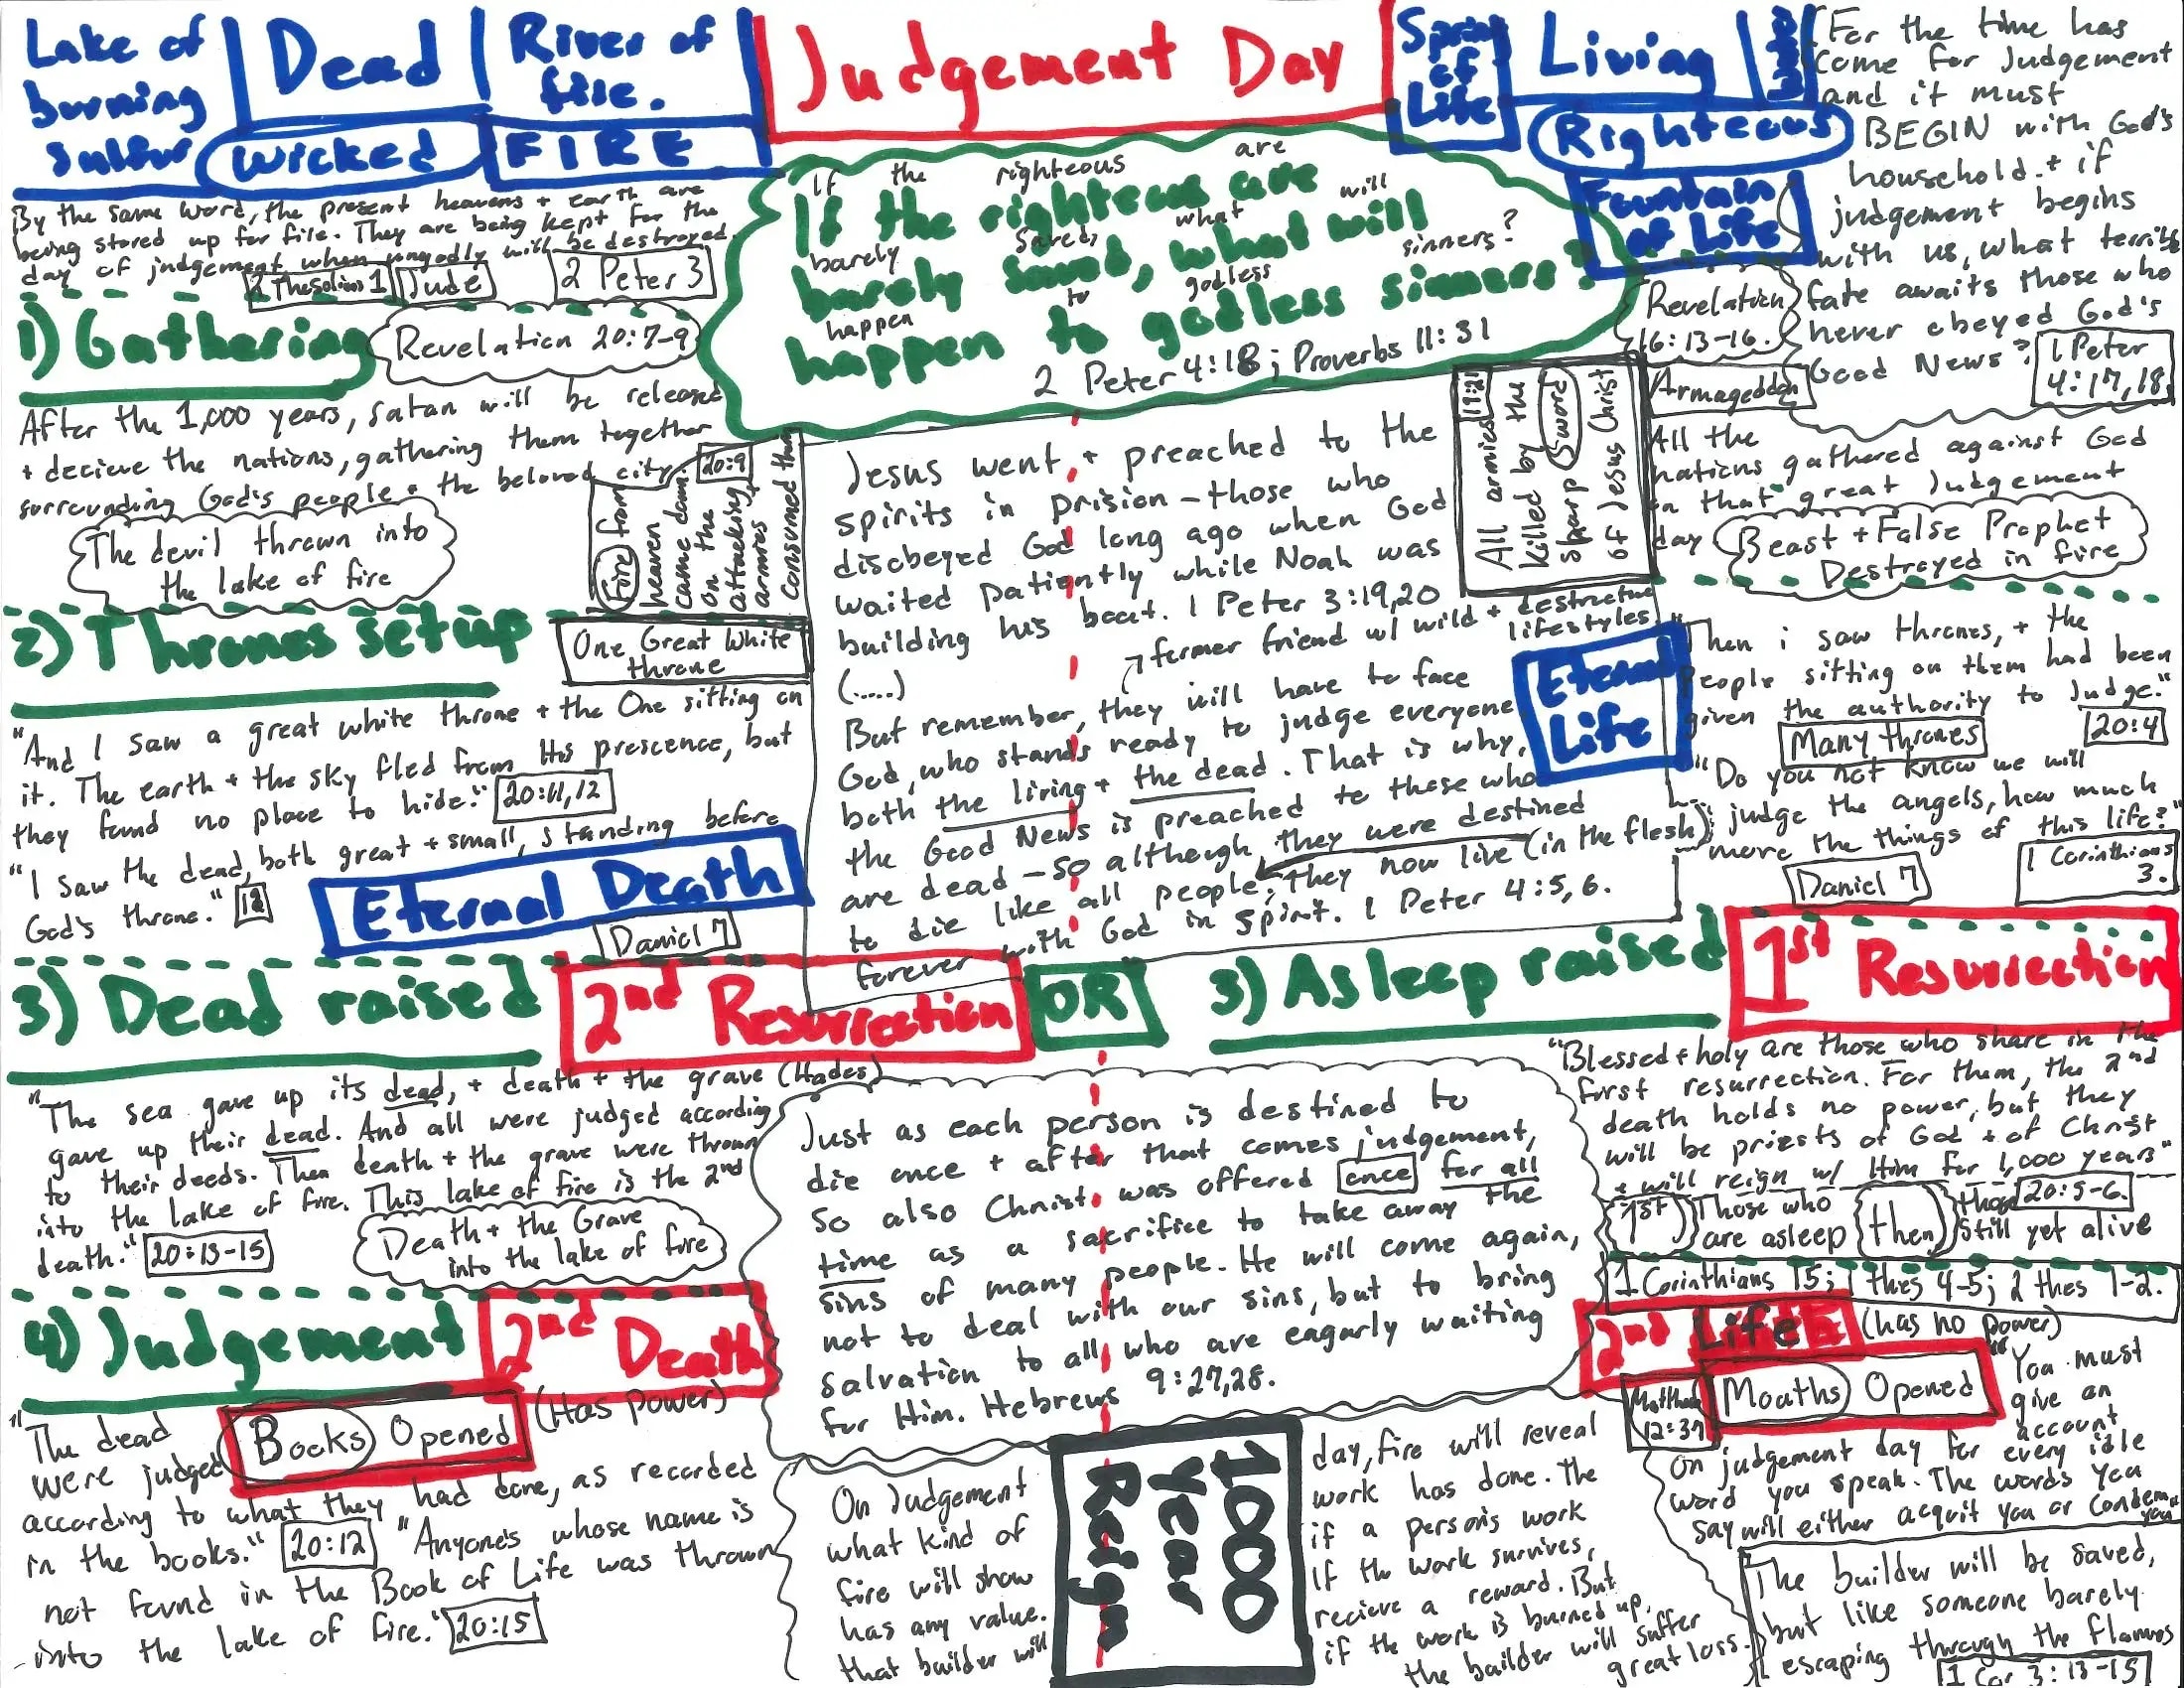 Lake of
burning
sulfur
Dead
River of
fire.
Wicked
FIRE
Judgement Day
Spring
of
Life
Living
Righteous
Fountain
of Life
By the same word, the present heavens + earth are
being stored up for fire. They are being kept for the
day of judgement when ungodly will be destroyed.
2 Thesolins 1
Jude
2 Peter 3
If the righteous are
barely saved, what will
happen to godless sinners?
If the righteous are
barely saved, what will
happen to godless sinners?
2 Peter 4:18; Proverbs 11:31
For the time has
come for Judgement
and it must
BEGIN with God's
household. + if
judgement begins
with us, what terrible
fate awaits those who
never obeyed God's
Good News?
1 Peter
4:17,18
1) Gathering
Revelation 20:7-9
After the 1,000 years, Satan will be released
+ decieve the nations, gathering them together
surrounding God's people + the beloved city.
The devil thrown into
the lake of fire
20:9
Fire from
heaven
came down
on the
attacking
armies +
consumed them
Jesus went + preached to the
spirits in prision - those who
disobeyed God long ago when God
waited patiently while Noah was
building his boat. 1 Peter 3:19,20
(.....)
former friend w/ wild + destructive
lifestyles
But remember, they will have to face
God, who stands ready to judge everyone
both the living + the dead. That is why,
the Good News is preached to those who
are dead - so although they were destined
to die like all people, they now live (in the flesh)
forever with God in spirit. 1 Peter 4:5,6.
19:21
All armies
killed by the
sharp sword
of Jesus Christ
Revelation
16:13-16.
Armageddon
All the
nations gathered against God
on that great Judgement
day
Beast + False Prophet
Destroyed in fire
2) Thrones setup
One Great White
throne
"And I saw a great white throne + the One sitting on
it. The earth + the sky fled from His prescence, but
they found no place to hide." 20:11,12
"I saw the dead, both great + small, standing before
God's throne." 12
Eternal Death
Daniel 7
Eternal
Life
"Then i saw thrones, + the
people sitting on them had been
given the authority to Judge."
Many thrones
20:4
"Do you not know we will
judge the angels, how much
more the things of this life?"
Daniel 7
1 Corinthians
3.
3) Dead raised
2nd Resurrection
OR
3) Asleep raised
1st Resurrection
"The sea gave up its dead, + death + the grave (Hades)
gave up their dead. And all were judged according
to their deeds. Then death + the grave were thrown
into the lake of fire. This lake of fire is the 2nd
death." 20:13-15
Death + the Grave
into the lake of fire
Just as each person is destined to
die once + after that comes judgement,
so also Christ was offered once for all
time as a sacrifice to take away the
sins of many people. He will come again,
not to deal with our sins, but to bring
salvation to all who are eagarly waiting
for Him. Hebrews 9:27,28.
"Blessed + holy are those who share in the
first resurrection. For them, the 2nd
death holds no power, but they
will be priests of God + of Christ
+ will reign w/ Him for 1,000 years"
20:5-6.
1st Those who
are asleep
then those
still yet alive
1 Corinthians 15; 1 thes 4-5; 2 thes 1-2.
4) Judgement
2nd Death
(Has power)
Books Opened
"The dead
were judged
according to what they had done, as recorded
in the books." 20:12 "Anyone's whose name is
not found in the Book of Life was thrown
into the lake of fire." 20:15
2nd Life
(has no power)
Matthew
12:37
Mouths Opened
"You must
give an
account
on judgement day for every idle
word you speak. The words you
say will either acquit you or condemn
you"
On Judgement
what kind of
fire will show
has any value.
that builder will
1000
Year
Reign
day, fire will reveal
work has done. The
if a persons work
If the work survives,
recieve a reward. But
if the work is burned up,
the builder will suffer
great loss.
The builder will be saved,
but like someone barely
escaping through the flames
1 Cor 3:13-15